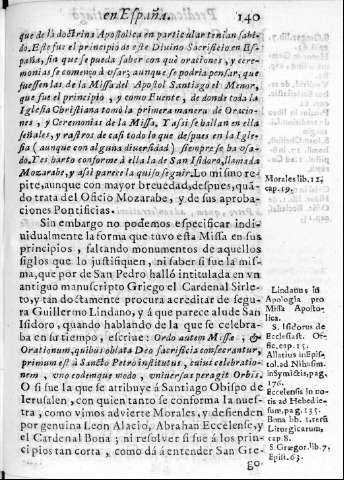 en España.
140
que de la doctrina Apostolica en particular tenian sabi-
do. Este fue el principio de este Divino Sacrificio en Es-
paña, sin que se pueda saber con què oraciones, y cere-
monias se començò à vsar; aunque se podria pensar, que
fuessen las de la Missa del Apostol Santiago el Menor,
que fue el principio, y como Fuente, de donde toda la
Iglesia Christiana tomò la primera manera de Oracio-
nes, y Ceremonias de la Missa, Y assi se hallan en ella
señales, y rastros de casi todo lo que despues en la Igle-
sia (aunque con alguna diversidad) siempre se ha vsa-
do. Y es harto conforme à ella la de San Isidoro, llamada
Mozarabe, y assi parece la quiso seguir. Lo mismo re-
pite, aunque con mayor brevedad, despues, quã-
do trata del Oficio Mozarabe, y de sus aproba-
ciones Pontificias.
Morales lib. 12,
cap. 19.
Sin embargo no podemos especificar indi-
vidualmente la forma que tuvo esta Missa en sus
principios, faltando monumentos de aquellos
siglos que lo justifiquen, ni saber si fue la mis-
ma, que por de San Pedro hallò intitulada en vn
antiguo manuscripto Griego el Cardenal Sirle-
to, y tan doctamente procura acreditar de segu-
ra Guillermo Lindano, y á que parece alude San
Isidoro, quando hablando de la que se celebra-
ba en su tiempo, escrive: Ordo autem Missæ, &
Orationum, quibus oblata Deo sacrificia consecrantur,
primum est à Sancto Petro institutus, cuius celebratio-
nem, vno eodemque modo, vniversus peragit Orbis.
O si fue la que se atribuye á Santiago Obispo de
Ierusalen, con quien tanto se conforma la nues-
tra, como vimos advierte Morales, y defienden
por genuina Leon Alacio, Abrahan Eccelense, y
el Cardenal Bona; ni resolver si fue á los prin-
cipios tan corta, como dá á entender San Gre-
go-
Lindanus in
Apologia pro
Missa Aposto-
lica.
S. Isidorus de
Ecclesiast. Of-
fic. cap. 15.
Allatius in Epis-
tol. ad Nihusim.
in Symictis, pag.
176.
Eccelensis in no-
tis ad Hebedie-
sum, pag. 135.
Bona lib. 1. rerũ
Liturgicarum,
cap. 8.
S. Gregor. lib. 7.
Epist. 63.